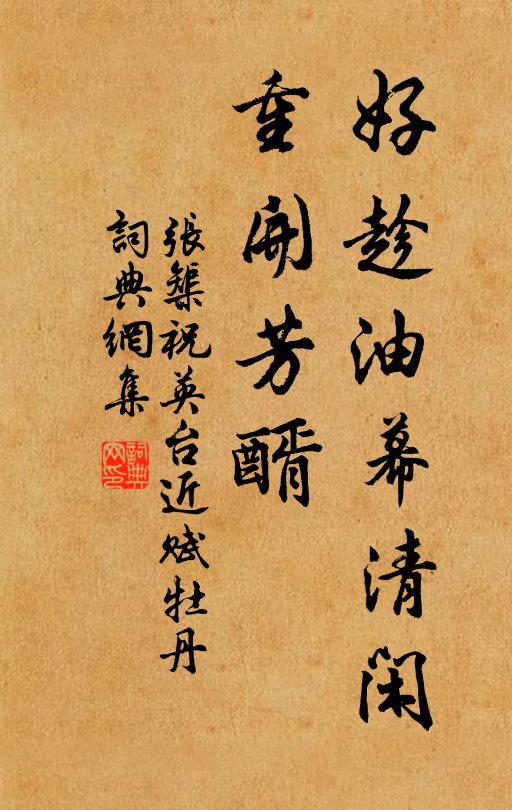 好趁油幕清閑
重開芳醑
張榘祝英台近賦牡丹
詞典網集
詞典網印